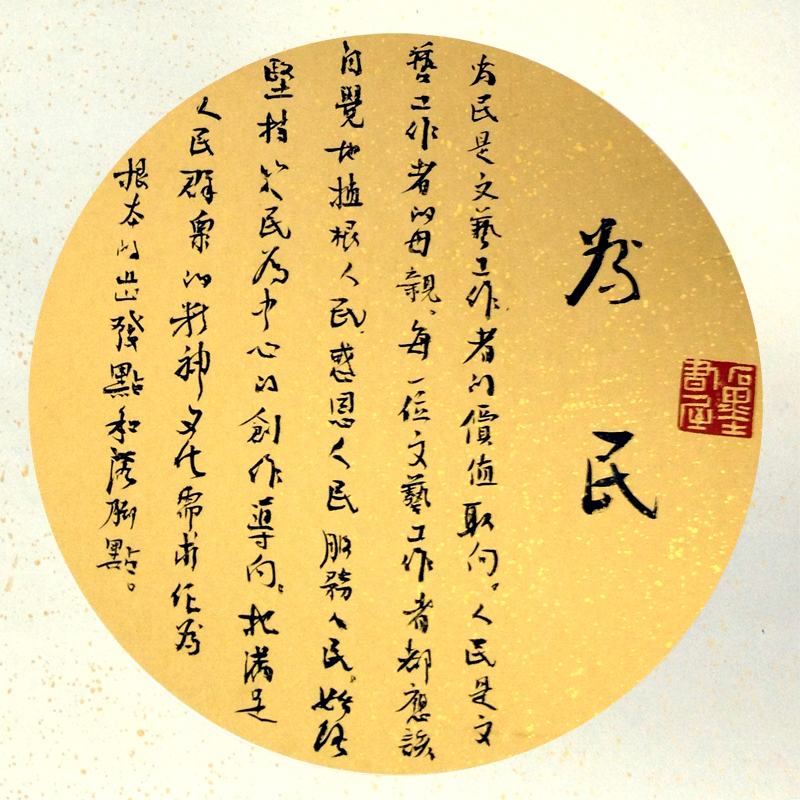 為民
石墨書屋
為民是文藝工作者的價值取向。人民是文
藝工作者的母親、每一位文藝工作者都應該
自覺地植根人民、感恩人民服務人民。始終
堅持以民為中心的創作導向。把滿足
人民群眾的精神文化需求作為
根本的出發點和落脚點。